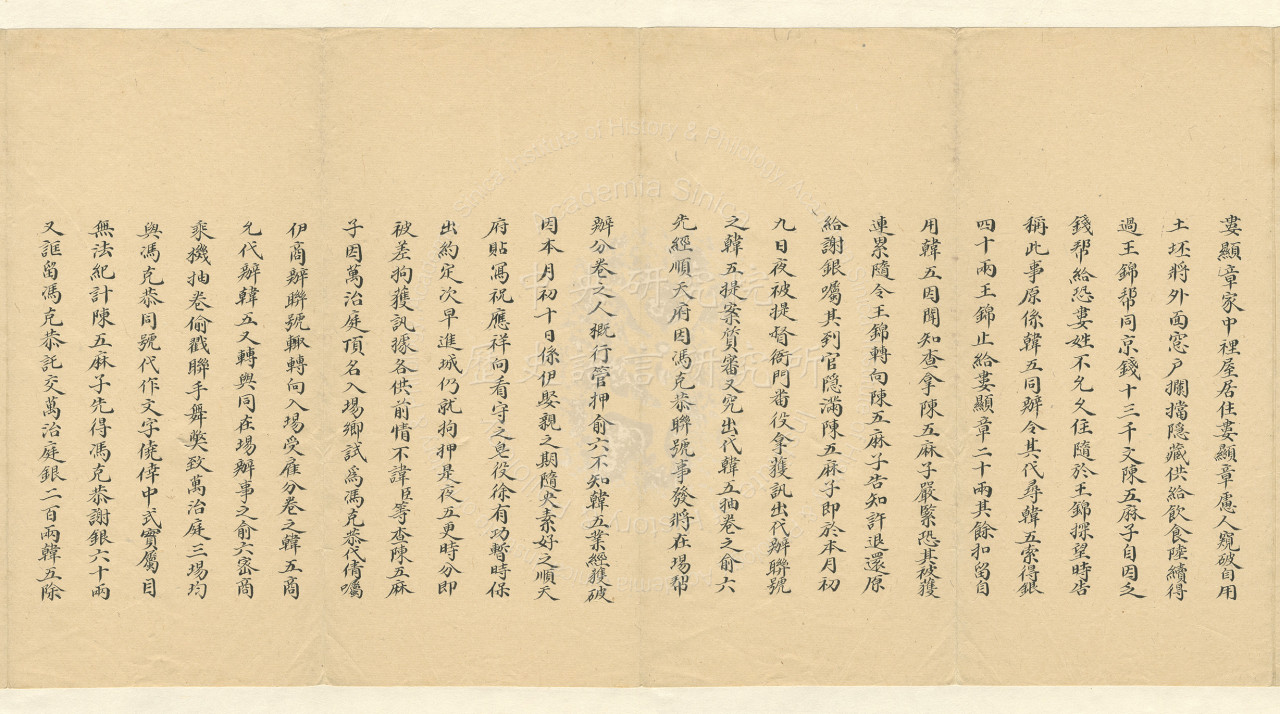 婁顯章家中裡屋居住婁顯章慮人窺破自用
土坯將外面窓戶攔擋隱藏供給飲食陸續得
過王錦幫同京錢十三千文陳五麻子自因乏
錢幫給恐婁姓不允久住隨於王錦探望時告
稱此事原係韓五同辦令其代尋韓五索得銀
四十兩王錦止給婁顯章二十兩其餘扣留自
用韓五因聞知查拿陳五麻子嚴緊恐其被獲
連累隨令王錦轉向陳五麻子告知許退還原
給謝銀囑其到官隱滿陳五麻子即於本月初
九日夜被提督衙門番役拿獲訊出代辦聯號
之韓五提案質審又究出代韓五抽卷之俞六
先經順天府因馮克恭聯號事發將在場幫
辦分卷之人概行管押俞六不知韓五業經獲破
因本月初十日係伊娶親之期隨央素好之順天
府貼寫祝應祥向看守之皂役徐有功暫時保
出約定次早進城仍就拘押是夜五更時分即
被差拘獲訊據各供前情不諱臣等查陳五麻
子因萬治庭頂名入場鄉試爲馮克恭代倩囑
伊商辦聯號輒轉向入場受雇分卷之韓五商
允代辦韓五又轉與同在場辦事之俞六密商
乘機抽卷偷戳聯手舞獘致萬治庭三場均
與馮克恭同號代作文字僥倖中式實屬目
無法紀計陳五麻子先得馮克恭謝銀六十兩
又誆留馮克恭託交萬治庭銀二百兩韓五除
中央研究院
歷史語言研究所
Academia Sinica